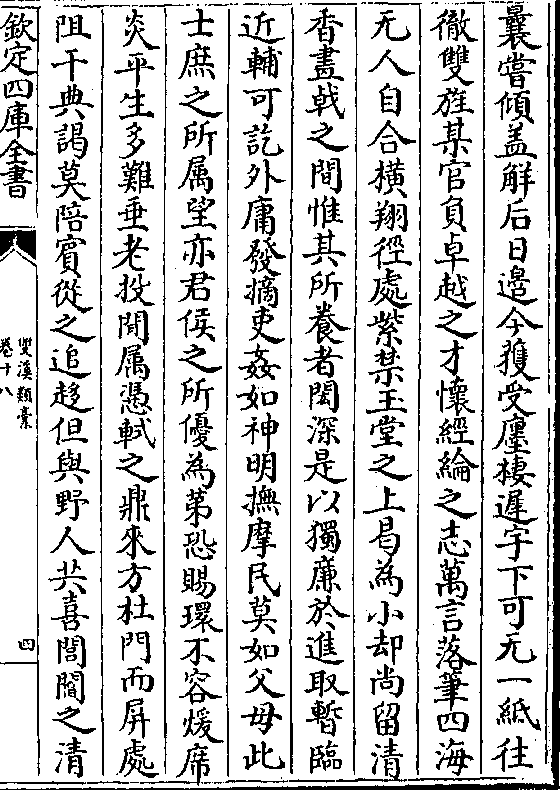 曩嘗傾盖觧后日邉今獲受廛棲遲宇下可无一紙徃
徹雙旌某官負卓越之才懷經綸之志萬言落筆四海
无人自合橫翔徑處紫禁玉堂之上曷為小却尚留清
香畫戟之間惟其所養者閎深是以獨廉於進取暫臨
近輔可訖外庸發摘吏姦如神明撫摩民莫如父母此
士庶之所属望亦君侯之所優為第恐賜環不容煖席
炎平生多難垂老投閒属憑軾之鼎來方杜門而屏處
阻干典謁莫陪賓從之追趍但與野人共喜誾閻之清
欽定四庫全書
雙溪類稾
卷十八
四